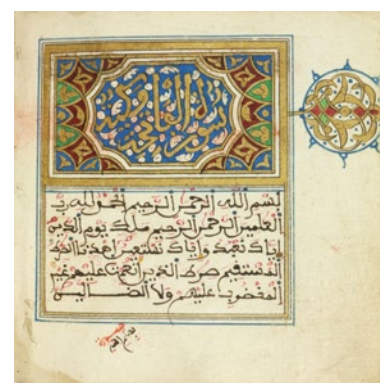 سورة الفاتحة مكية
بسم الله الرحمن الرحيم الحمد لله رب
العلمين الرحمن الرحيم ملك يوم الدين
إياك نعبد وإياك نستعين اهدنا الصرط
المستقيم صرط الذين أنعمت عليهم غير
المغضوب عليهم ولا الضالين